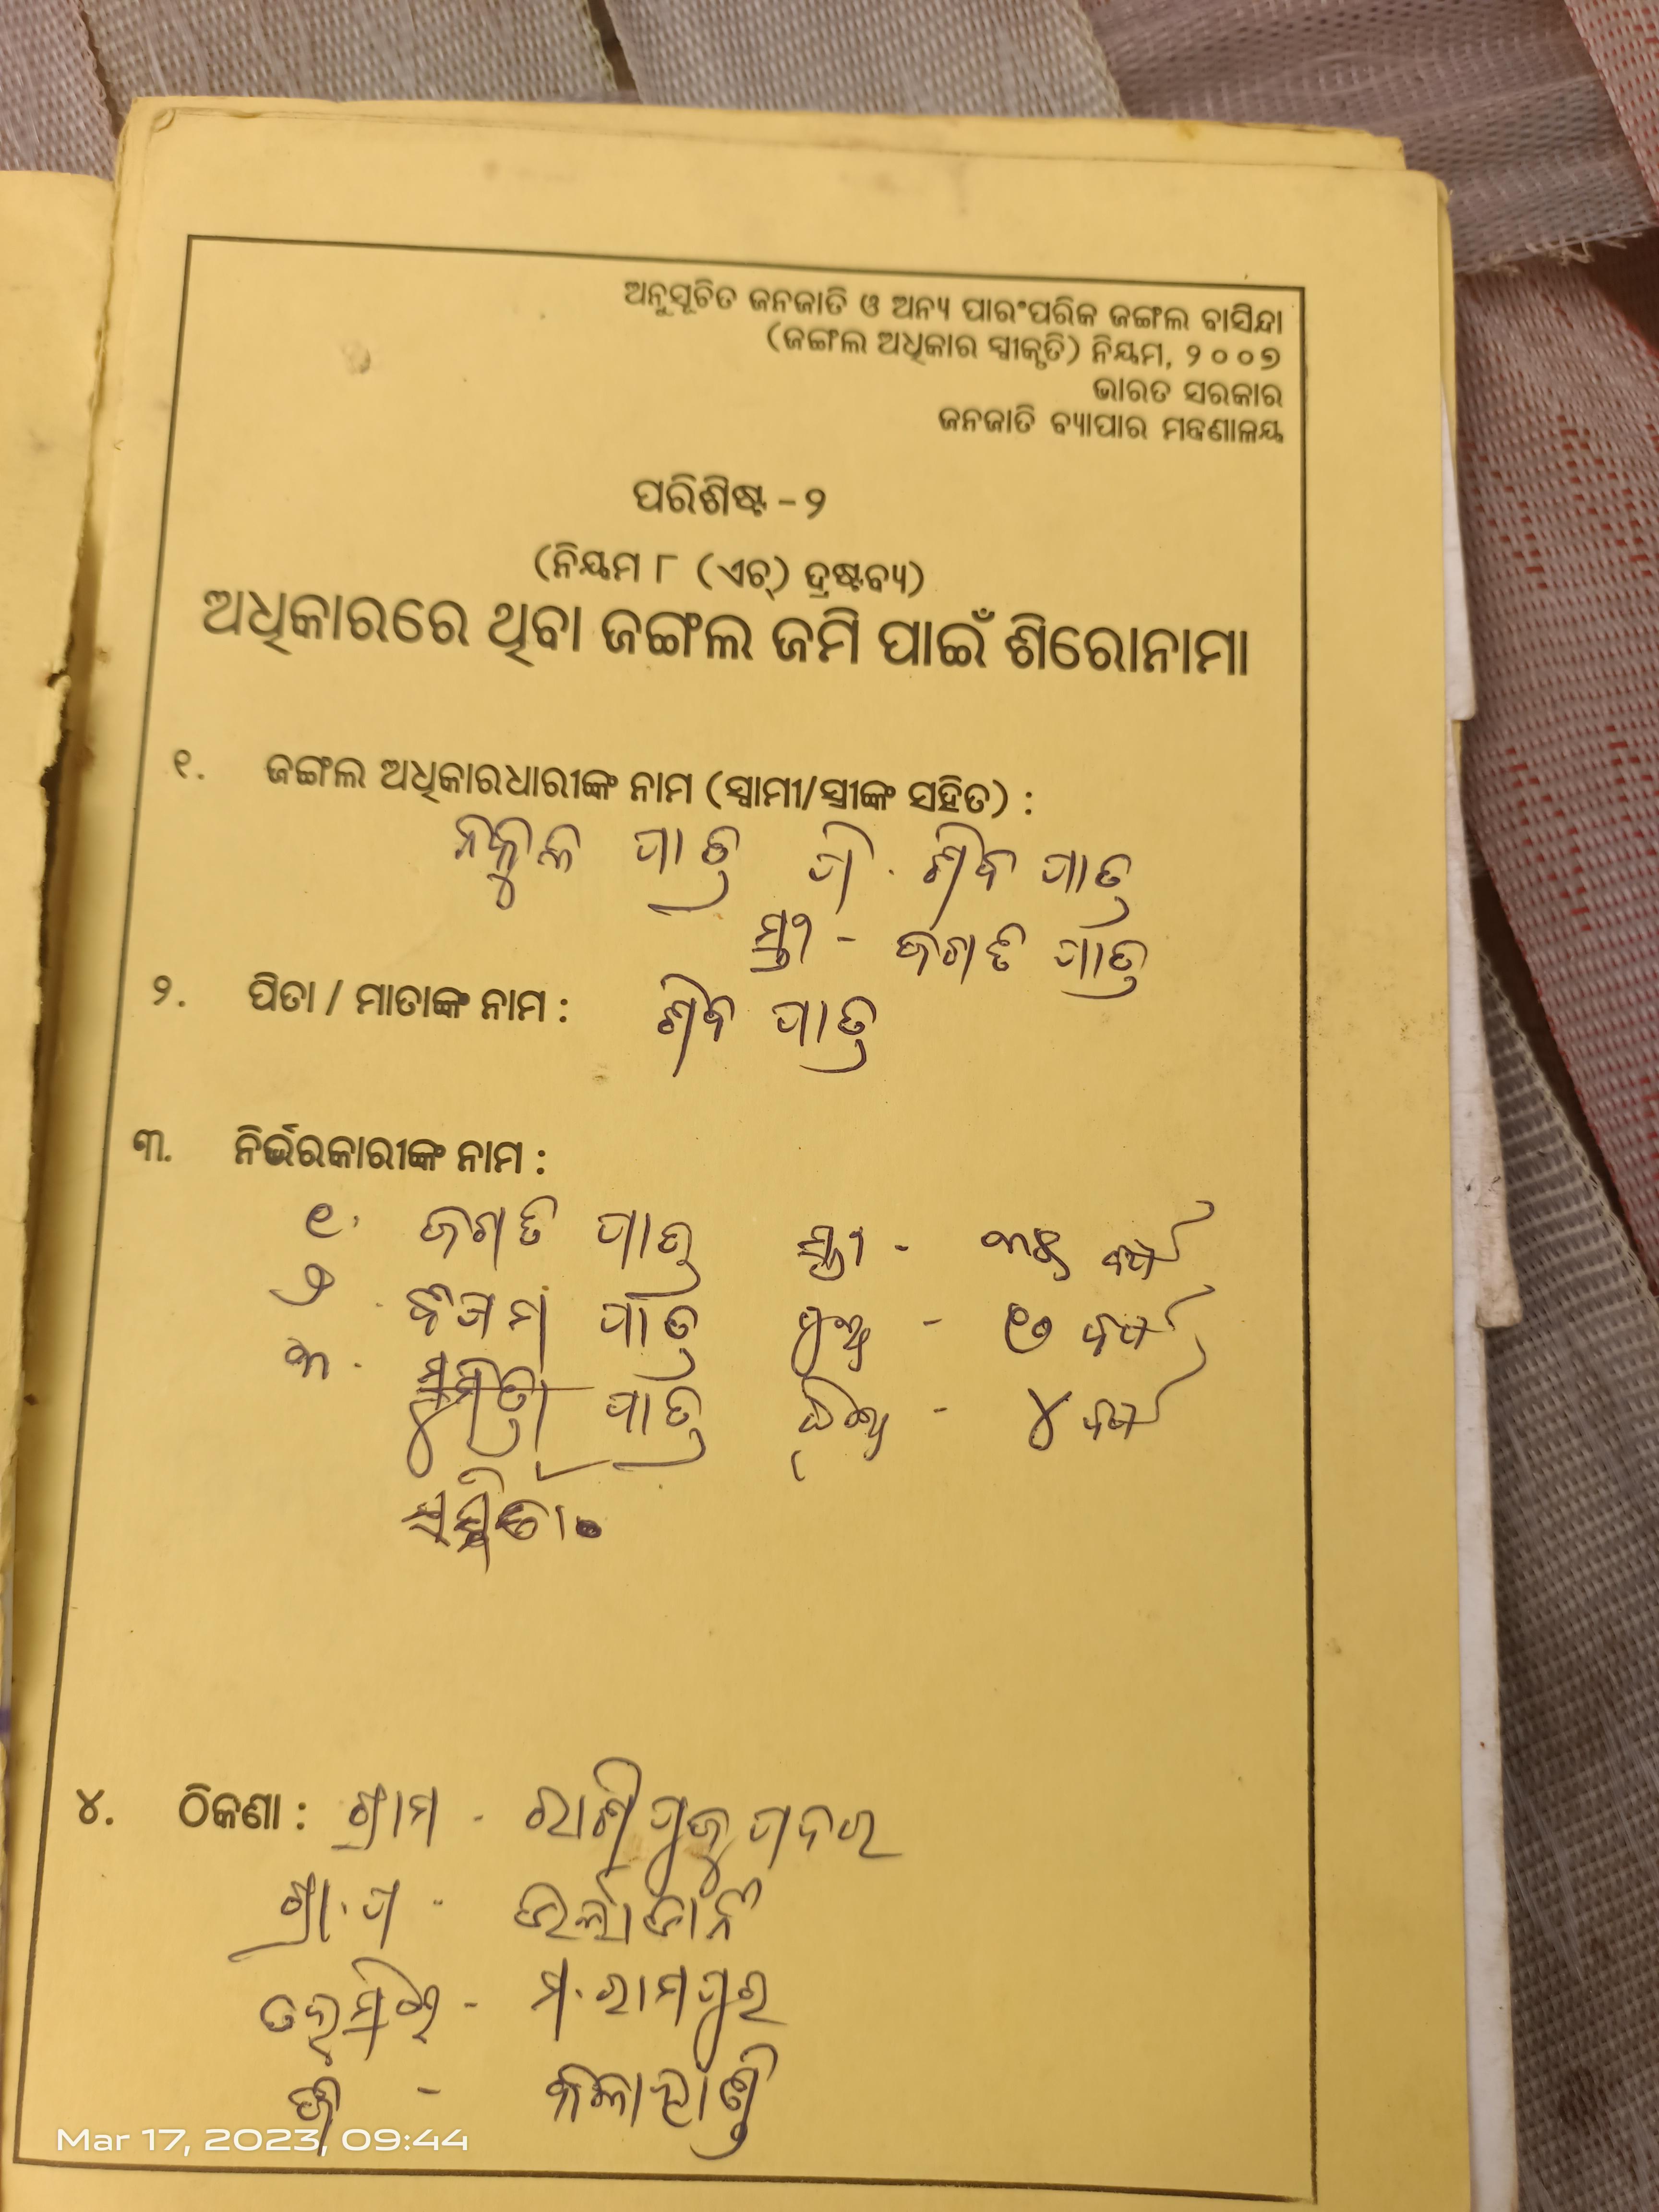 ଅନୁସୂଚିତ ଜନଜାତି ଓ ଅନ୍ୟ ପାରଂପରିକ ଜଙ୍ଗଲ ବାସିନ୍ଦା
(ଜଙ୍ଗଲ ଅଧିକାର ସ୍ୱୀକୃତି) ନିୟମ, ୨୦୦୭
ଭାରତ ସରକାର
ଜନଜାତି ବ୍ୟାପାର ମନ୍ତ୍ରଣାଳୟ
ପରିଶିଷ୍ଟ - ୨
(ନିୟମ ୮ (ଏଚ୍) ଦ୍ରଷ୍ଟବ୍ୟ)
ଅଧିକାରରେ ଥିବା ଜଙ୍ଗଲ ଜମି ପାଇଁ ଶିରୋନାମା
୧. ଜଙ୍ଗଲ ଅଧିକାରଧାରୀଙ୍କ ନାମ (ସ୍ୱାମୀ/ସ୍ତ୍ରୀଙ୍କ ସହିତ) :
ନକୁଳ ପାତ୍ର ପି. ଶିବ ପାତ୍ର
ସ୍ତ୍ରୀ - ଜଗତି ପାତ୍ର
୨. ପିତା / ମାତାଙ୍କ ନାମ : ଶିବ ପାତ୍ର
୩. ନିର୍ଭରକାରୀଙ୍କ ନାମ :
୧. ଜଗତି ପାତ୍ର ସ୍ତ୍ରୀ - ବର୍ଷ
୨. ପାତ୍ର ପୁଅ - ୧୦ ବର୍ଷ
୩. ପାତ୍ର ଝିଅ - ୪ ବର୍ଷ
୪. ଠିକଣା : ଗ୍ରାମ -
ଗ୍ରା.ପ -
ମ.ରାମପୁର
ଜି - କଳାହାଣ୍ଡି
Mar 17, 2023, 09:44